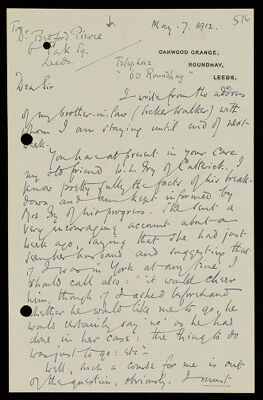 To:-
Dr Bedford Pierce
6 Park Sq.
Leeds.
May. 7. 1912.
516
OAKWOOD GRANGE,
ROUNDHAY,
LEEDS.
Telephone
"60 Roundhay"
Dear Sir
I write from the address
of my brother-in-law (Tucker Walker) with
whom I am staying until end of next
week.
You have at present in your care
my old friend W. L. Ivy of Catterick. I
know pretty fully the facts of his break-
down, and am kept informed by
Mrs Ivy of his progress. She sent a
very encouraging account about a
week ago, saying that she had just
seen her husband and suggesting that
if I was in York at any time I
should call also: "it would cheer
him, though if I asked beforehand
whether he would like me to go, he
would certainly say 'no' as he had
done in her case: the thing to do
was just to go: etc"
Well, such a course for me is out
of the question, obviously. I must